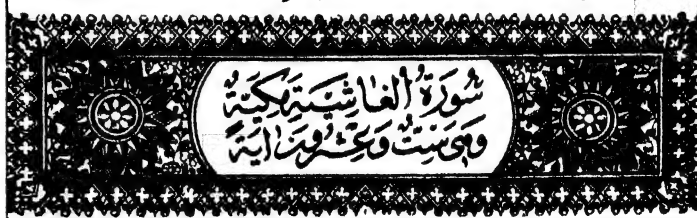 سُورَةُ الْغَاشِيَةِ مَكِّيَّةٌ
وَهِيَ سِتٌّ وَعِشْرُونَ اٰيَةً